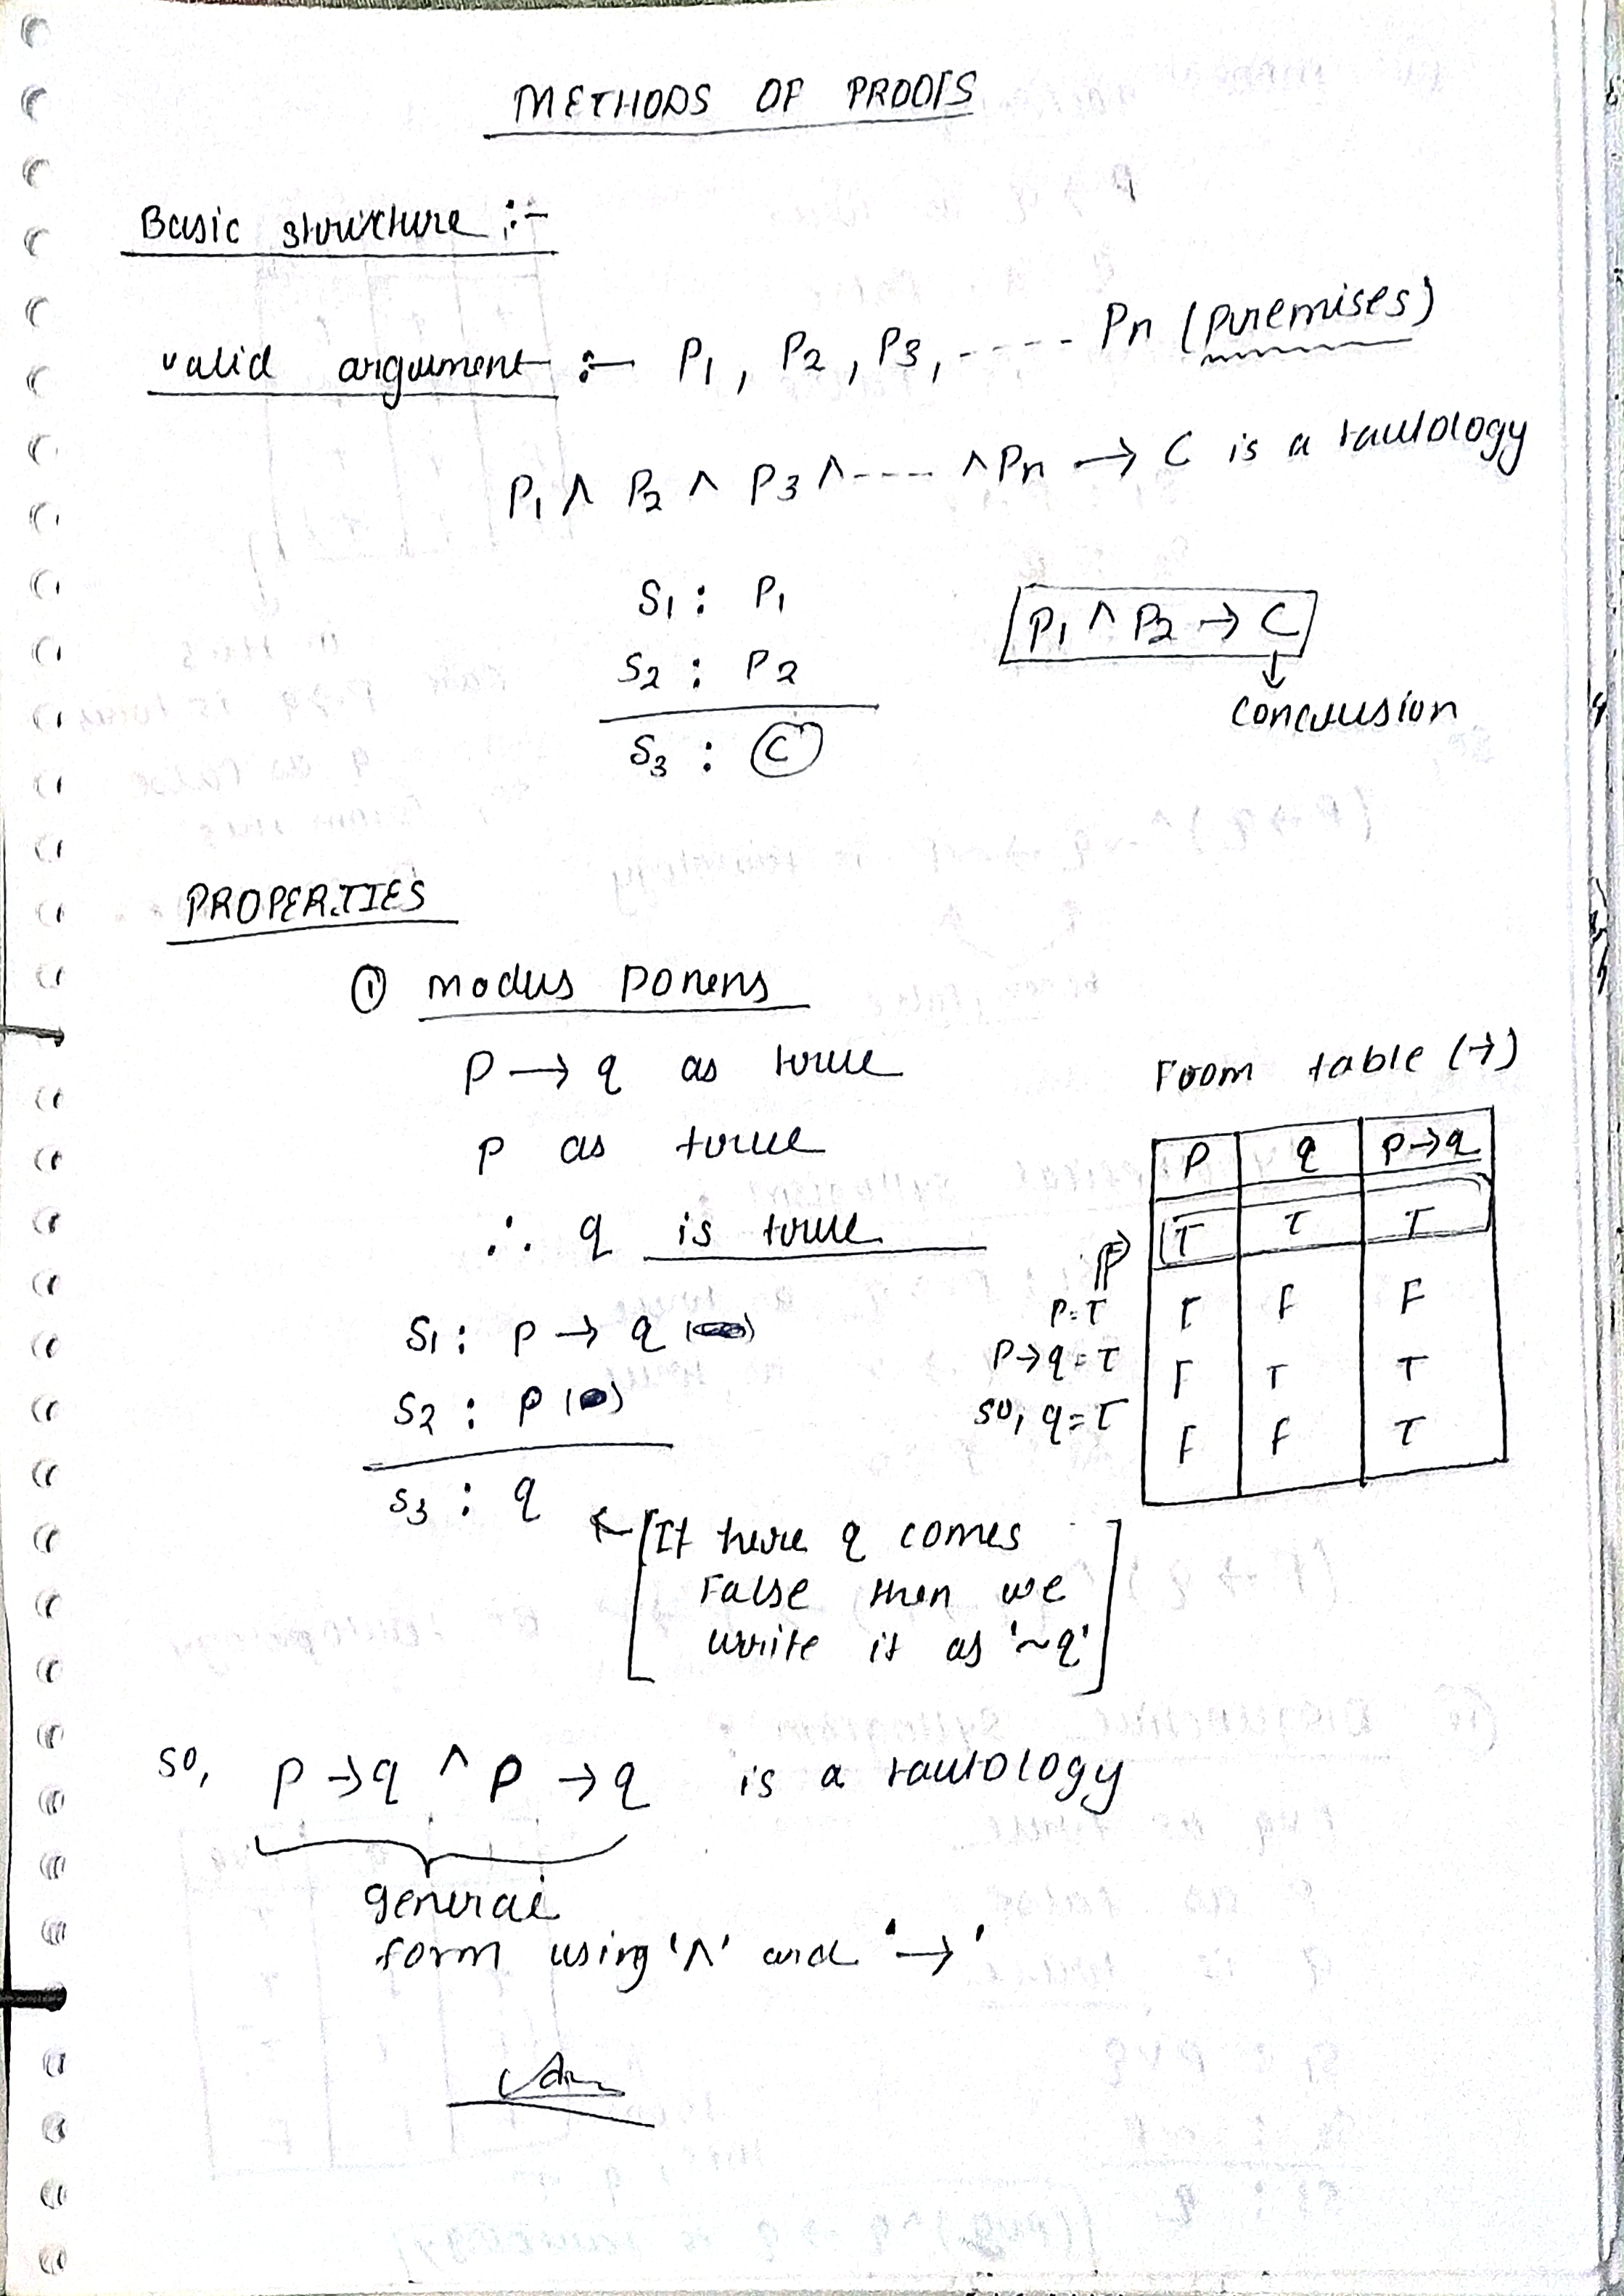 METHODS OF PROOFS
Basic structure :-
valid argument :- P1, P2, P3, ---- Pn (premises)
P1 ∧ P2 ∧ P3 ∧ ---- ∧ Pn → C is a tautology
S1 : P1
S2 : P2
S3 : C
P1 ∧ P2 → C
↓
Conclusion
PROPERTIES
① modus ponens
P → q as true
p as true
∴ q is true
S1 : p → q
S2 : p
S3 : q
← [If here q comes
False then we
write it as '~q']
From table (→)
P q P→q
T T T
T F F
F T T
F F T
P=T
P→q=T
so, q=T
so, p → q ∧ p → q is a tautology
general
form using '∧' and '→'